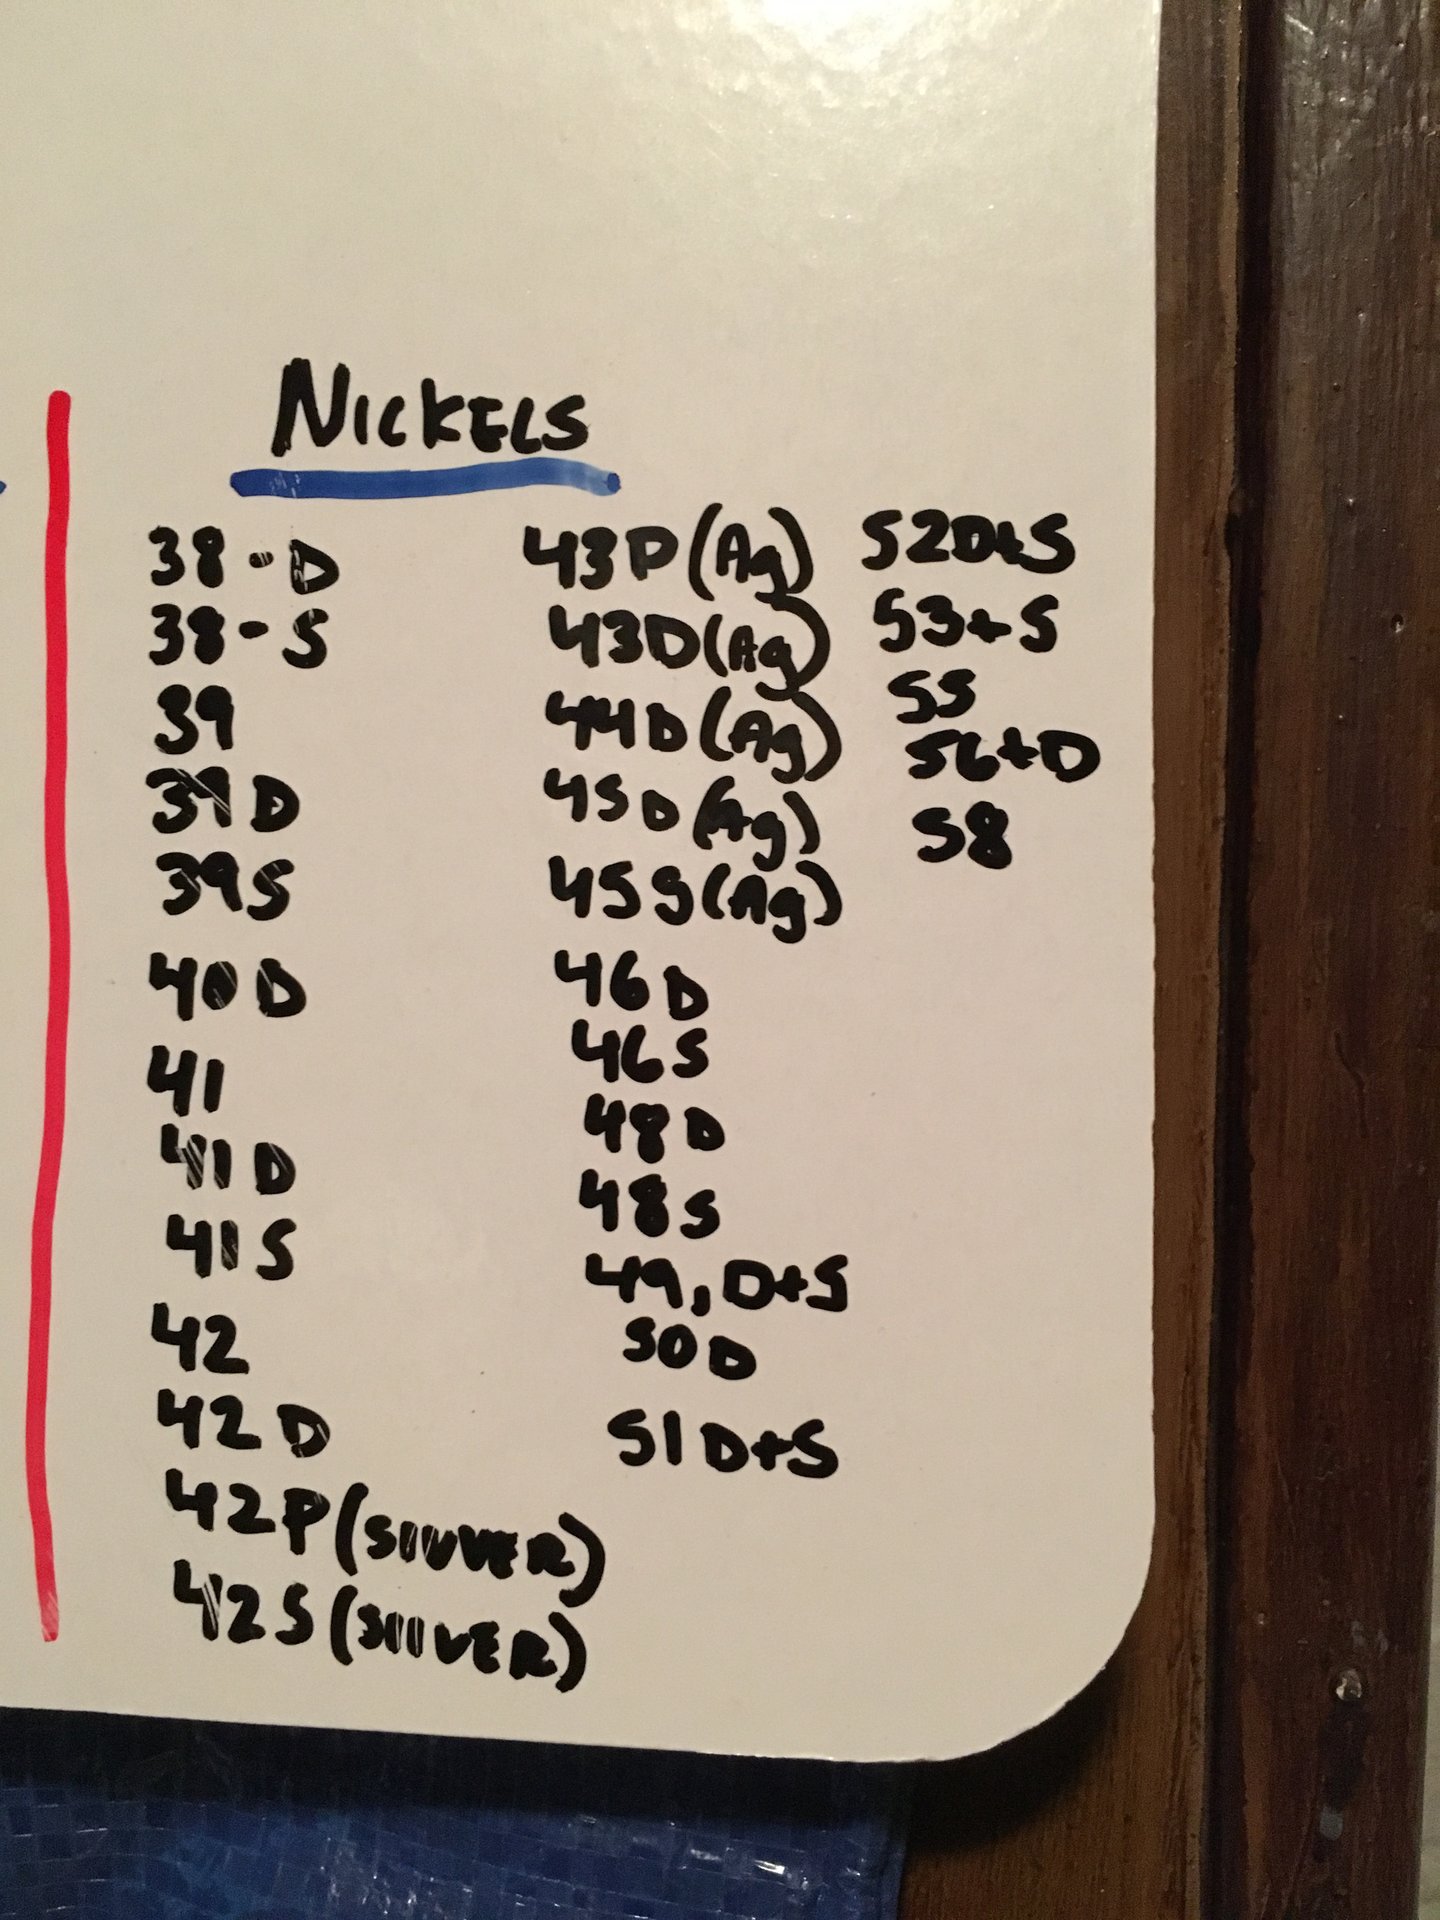 NICKELS
38-D
38-S
39
39 D
39S
40 D
41
41 D
41 S
42
42 D
42P (SILVER)
42S (SILVER)
43P (Ag)
43D (Ag)
44D (Ag)
45D (Ag)
45S (Ag)
46D
46S
48D
48S
49, D+S
50D
51 D+S
52D+S
53+S
55
56+D
58